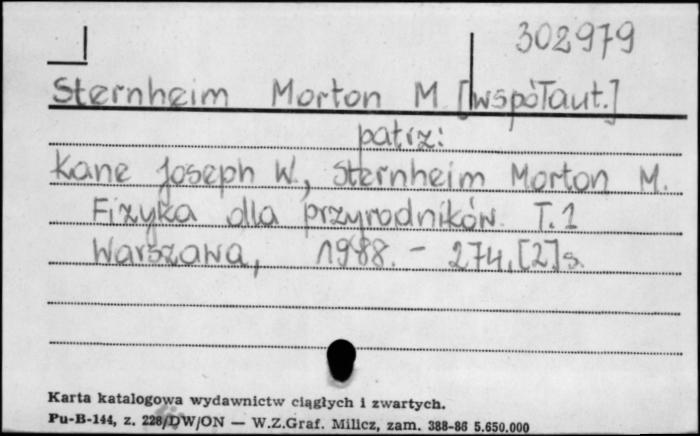 302979
Sternheim Morton M. [współaut.]
patrz:
Kane Joseph W., Sternheim Morton M.
Fizyka dla przyrodników. T. 1
Warszawa, 1988. - 274, [2] s.
Karta katalogowa wydawnictw ciągłych i zwartych.
Pu-B-144, z. 228/DW/ON — W.Z.Graf. Milicz, zam. 388-86 5.650.000